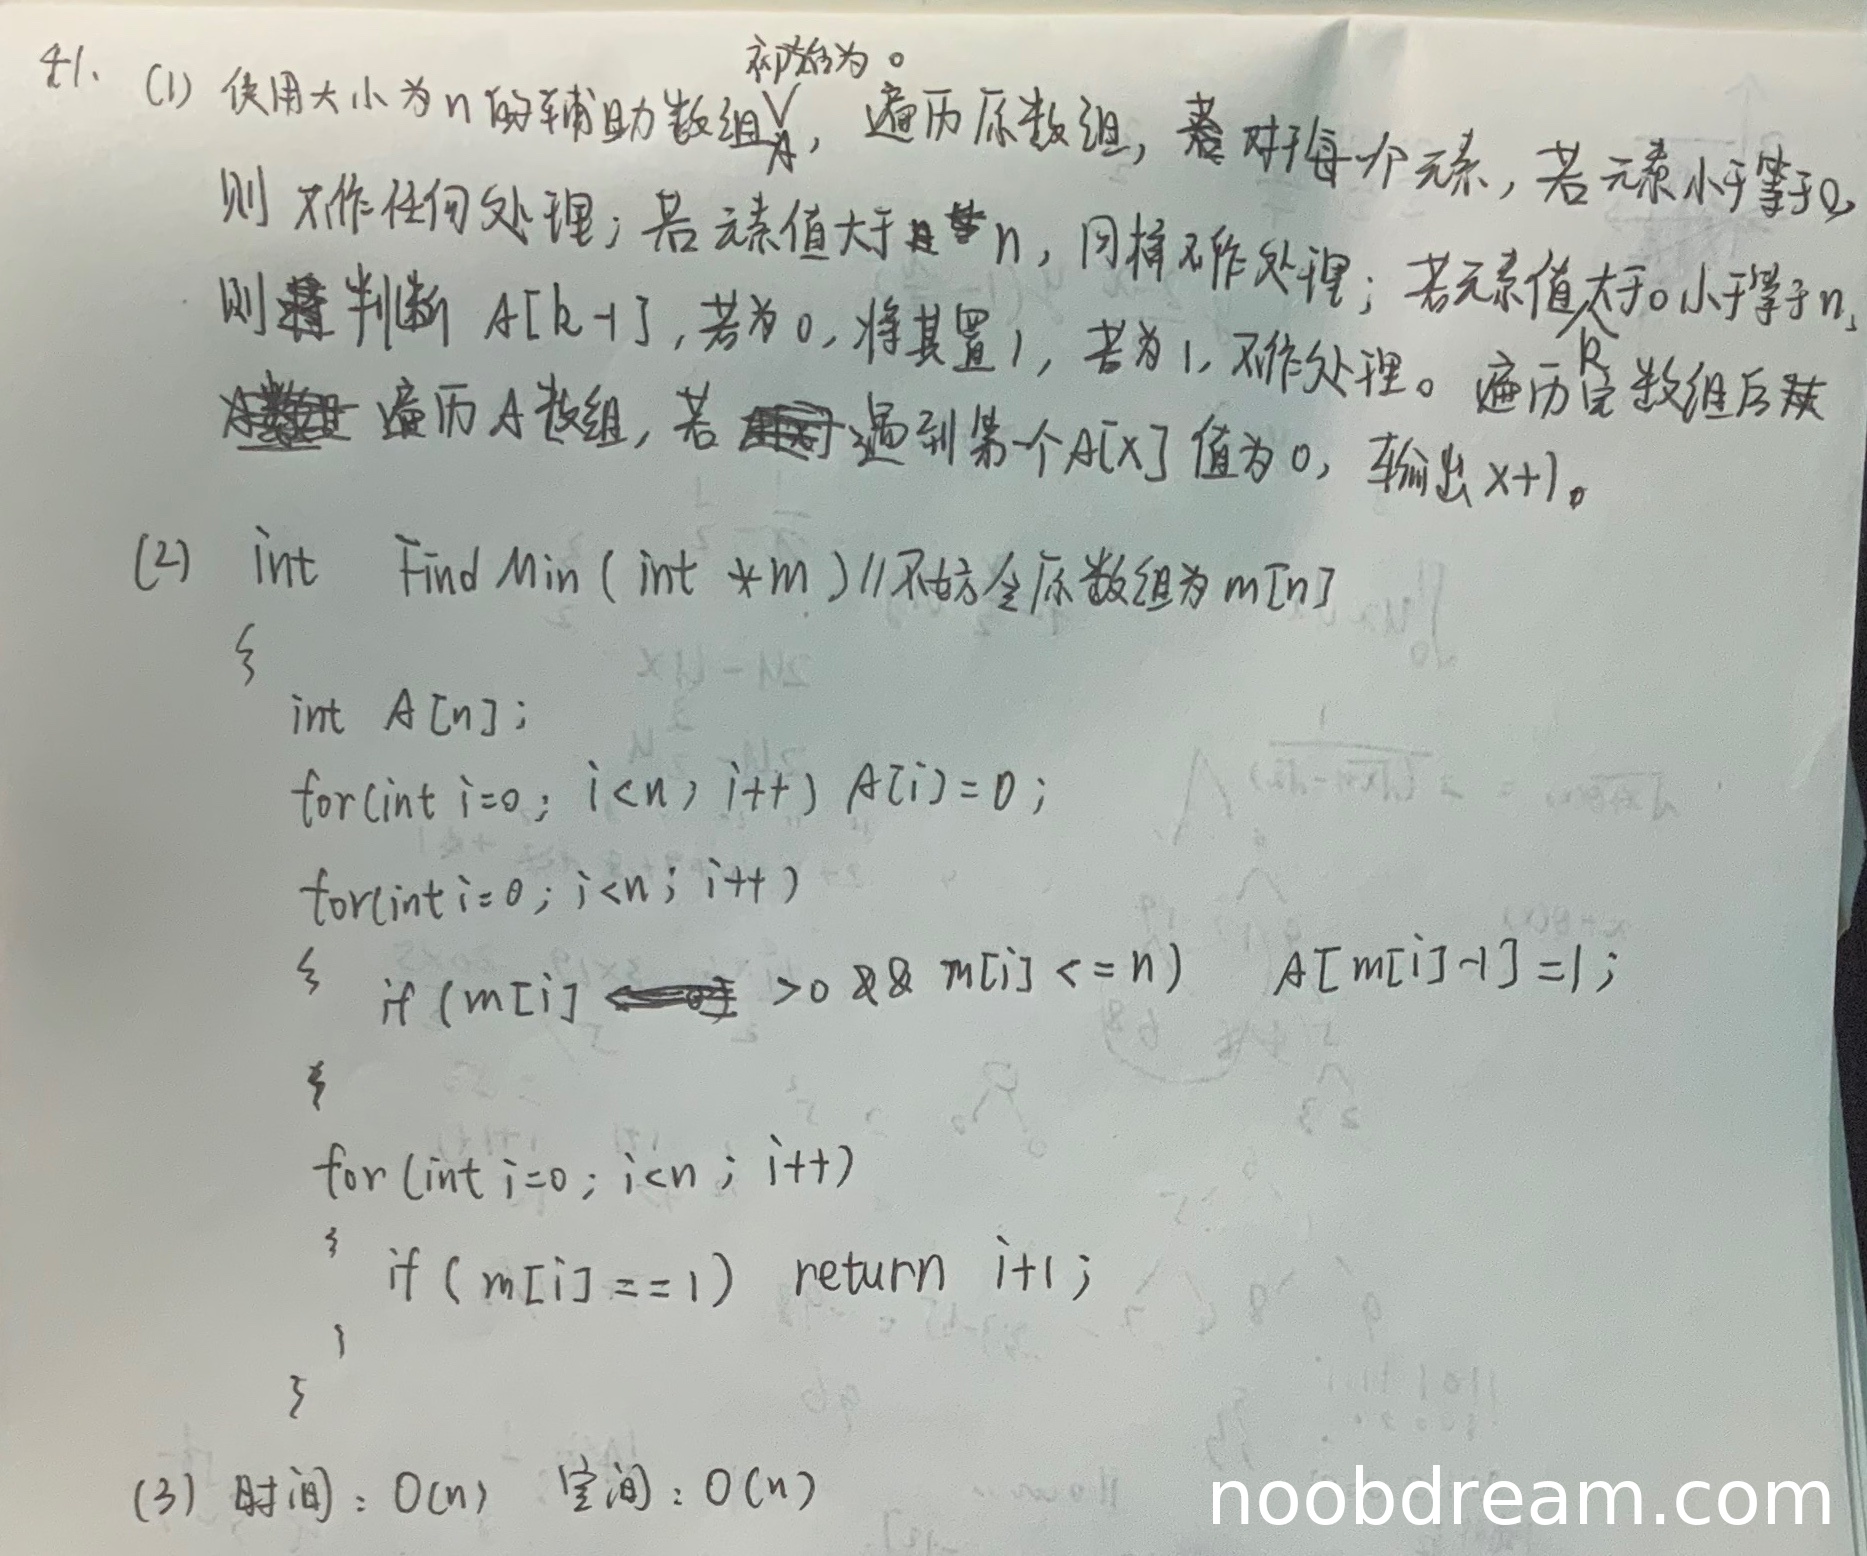 41. (1) 使用大小为n的辅助数组A初始为0，遍历原数组，对于每个元素，若元素小于等于0，
则不作任何处理；若元素值大于n，同样不作处理；若元素值k大于0小于等于n，
则判断A[k-1]，若为0，将其置1，若为1，不作处理。遍历完数组后
遍历A数组，若遇到第一个A[x]值为0，输出x+1。
(2) int FindMin(int *m)//不妨令原数组为m[n]
{
int A[n];
for(int i=0; i<n; i++) A[i]=0;
for(int i=0; i<n; i++)
{ if(m[i] >0 && m[i]<=n) A[m[i]-1]=1;
}
for(int i=0; i<n; i++)
{ if(m[i]==1) return i+1;
}
}
(3) 时间：O(n) 空间：O(n)
noobdream.com